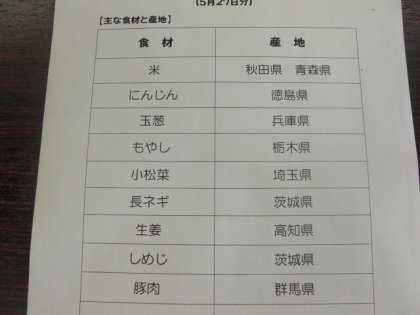 (5月27日分)
【主な食材と産地】
食 材 産 地
米 秋田県 青森県
にんじん 徳島県
玉葱 兵庫県
もやし 栃木県
小松菜 埼玉県
長ネギ 茨城県
生姜 高知県
しめじ 茨城県
豚肉 群馬県